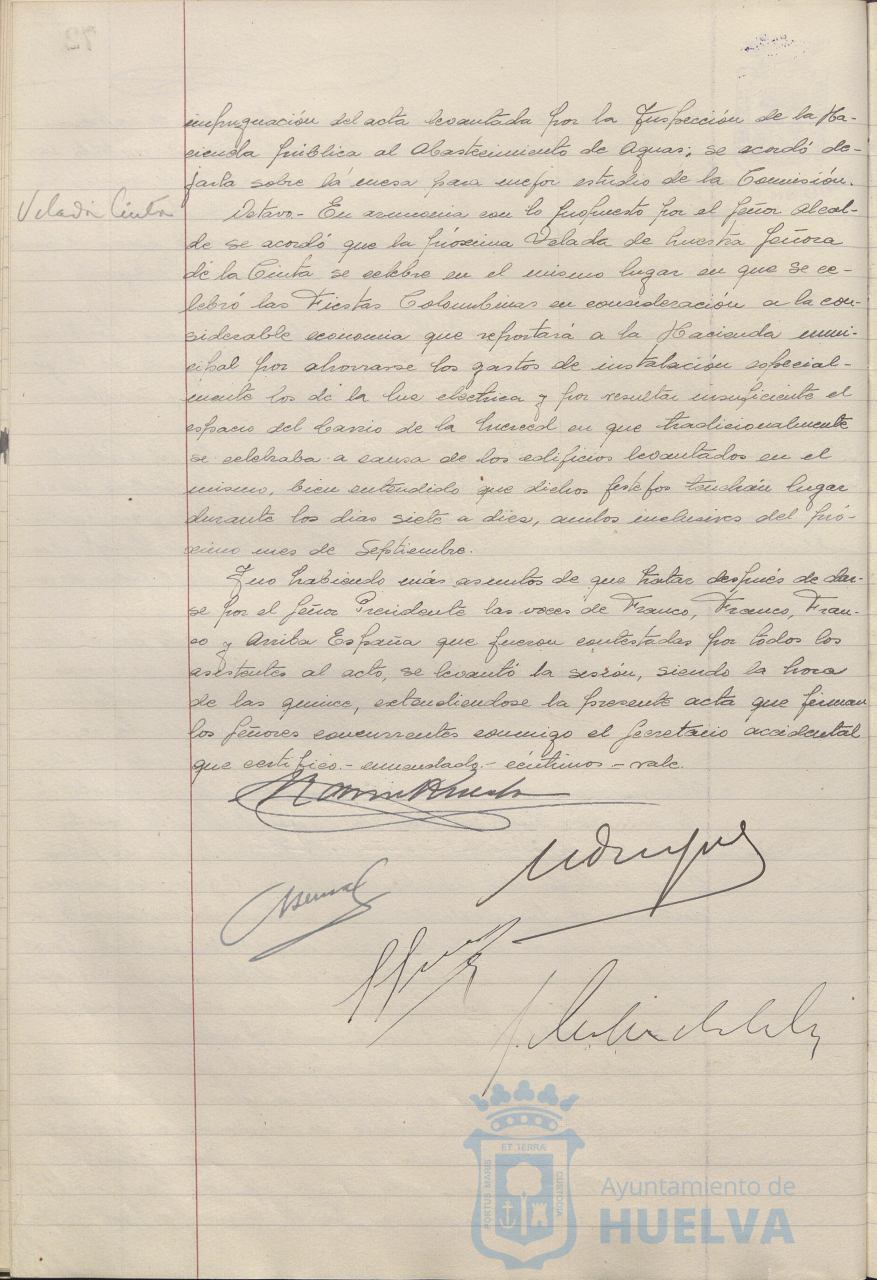 impugnación del acta levantada por la Inspección de la Ha-
cienda pública al Abastecimiento de Aguas; se acordó de-
jarla sobre la mesa para mejor estudio de la Comisión.
Velada Cinta
Octavo.- En armonia con lo propuesto por el Señor Alcal-
de se acordó que la próxima Velada de Nuestra Señora
de la Cinta se celebre en el mismo lugar en que se ce-
lebró las Fiestas Colombinas en consideración a la con-
siderable economia que reportará a la Hacienda muni-
cipal por ahorrarse los gastos de instalación especial-
mente los de la luz electrica y por resultar insuficiente el
espacio del barrio de la Merced en que tradicionalmente
se celebraba a causa de los edificios levantados en el
mismo, bien entendido que dichos festejos tendrán lugar
durante los dias siete a diez, ambos inclusives del pró-
ximo mes de Septiembre.
Y no habiendo más asuntos de que tratar después de dar-
se por el Señor Presidente las voces de Franco, Franco, Fran-
co y Arriba España que fueron contestadas por todos los
asistentes al acto, se levantó la sesión, siendo la hora
de las quince, extendiendose la presente acta que firman
los Señores concurrentes conmigo el Secretario accidental
que certifico.- enmendado.- céntimos - vale.
ET TERRA
PORTUS MARIS
CUSTODIA
Ayuntamiento de
HUELVA